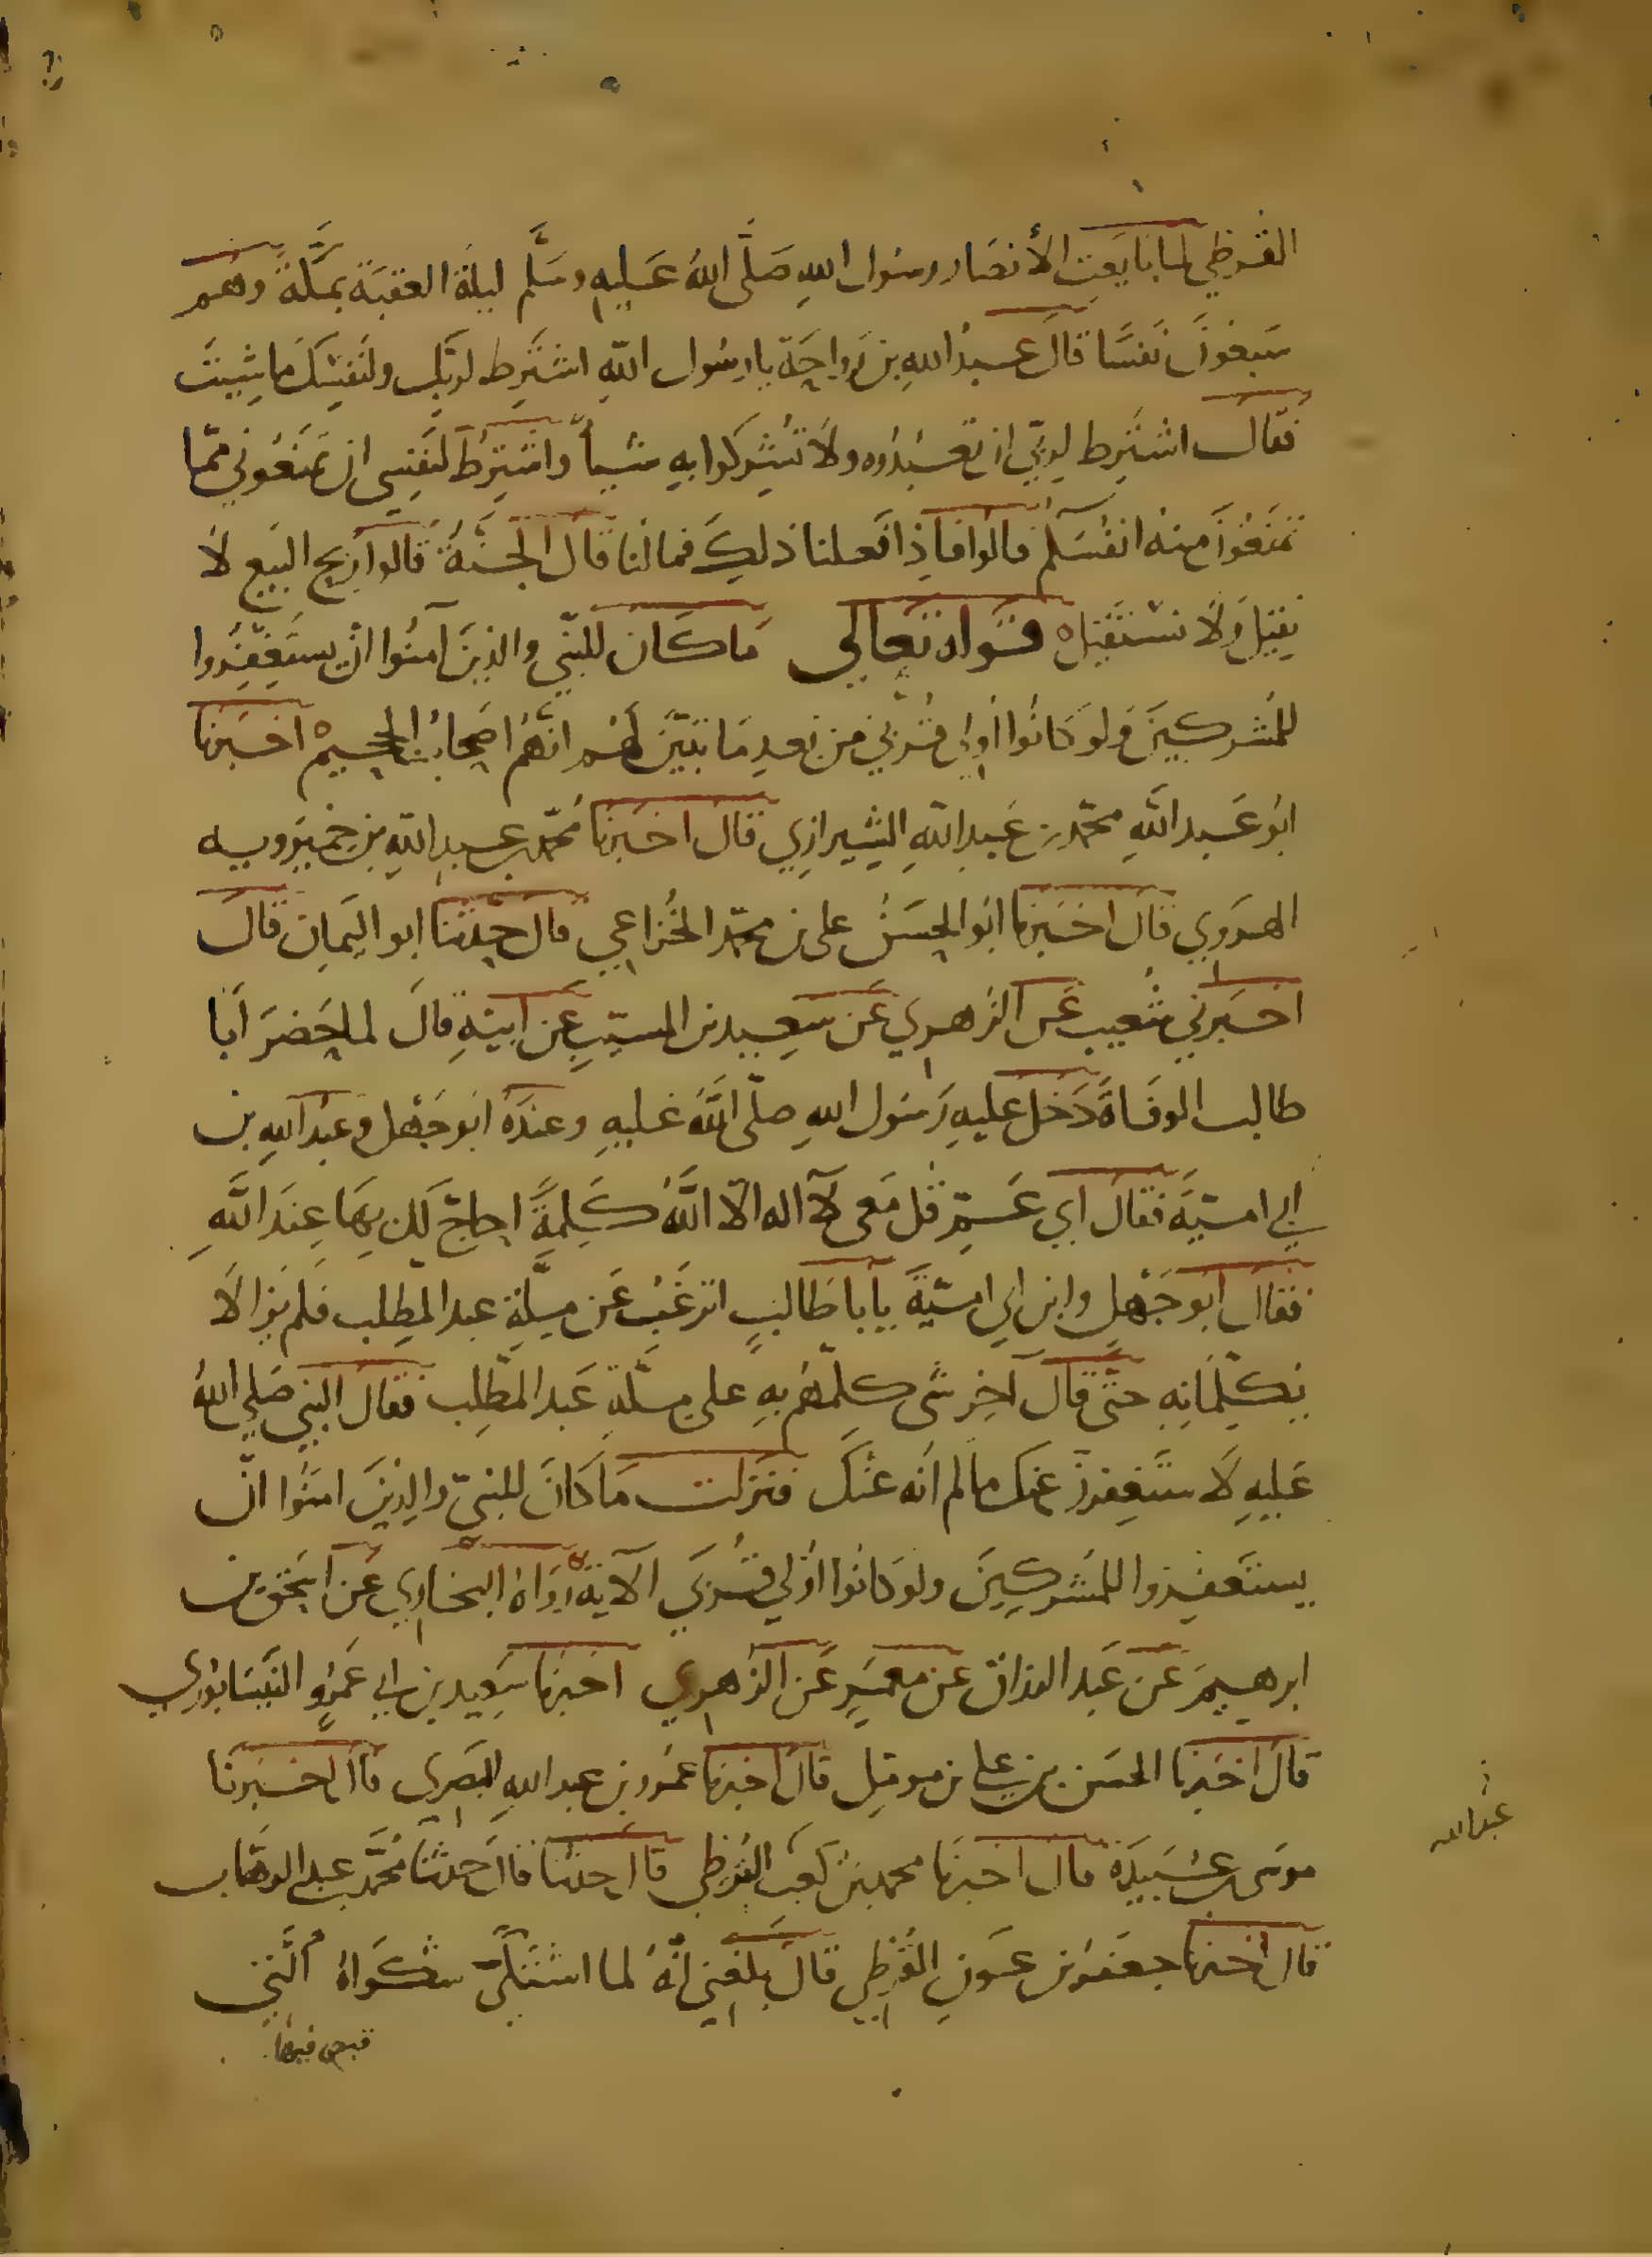 القرظي لما بايعت الأنصار رسول الله صلى الله عليه وسلم ليلة العقبة بمكة وهم
سبعون نفسا قال عبد الله بن رواحة يا رسول الله اشترط لربك ولنفسك ما شيت
فقال اشترط لربي ان تعبدوه ولا تشركوا به شيأ واشترط لنفسي ان تمنعوني مما
تمنعون منه انفسكم قالوا فاذا فعلنا ذلك فما لنا قال الجنة قالوا ربح البيع لا
نقيل ولا نستقيل ه قوله تعالى ما كان للنبي والذين آمنوا ان يستغفروا
للمشركين ولو كانوا اولي قربى من بعد ما تبين لهم انهم اصحاب الجحيم اخبرنا
ابو عبد الله محمد بن عبد الله الشيرازي قال اخبرنا محمد بن عبد الله بن خميرويه
الهروي قال اخبرنا ابو الحسن علي بن محمد الخزاعي قال حدثنا ابو اليمان قال
اخبرني شعيب عن الزهري عن سعيد بن المسيب عن ابيه قال لما حضر أبا
طالب الوفاة دخل عليه رسول الله صلى الله عليه وعنده ابو جهل وعبد الله بن
ابي امية فقال اي عم قل معى لا اله الا الله كلمة احاج لك بها عند الله
فقال ابو جهل وابن ابي امية يا با طالب اترغب عن ملة عبد المطلب فلم يزالا
يكلمانه حتى قال آخر شى كلمهم به على ملة عبد المطلب فقال النبي صلى الله
عليه لا ستغفرن عنك ما لم انه عنك فنزلت ما كان للنبي والذين امنوا ان
يستغفروا للمشركين ولو كانوا اولي قربي الآية رواه البخاري عن اسحق بن
ابرهيم عن عبد الرزاق عن معمر عن الزهري اخبرنا سعيد بن ابي عمرو النيسابوري
قال اخبرنا الحسن بن علي بن مومل قال اخبرنا عمرو بن عبد الله البصري قال اخبرنا
موسى بن عبيدة قال اخبرنا محمد بن كعب القرظي قال حدثنا قال حدثنا محمد بن عبد الوهاب
قال اخبرنا جعفر بن عون القرظي قال بلغني انه لما اشتكى شكواه التي
قبض فيها
عبد الله